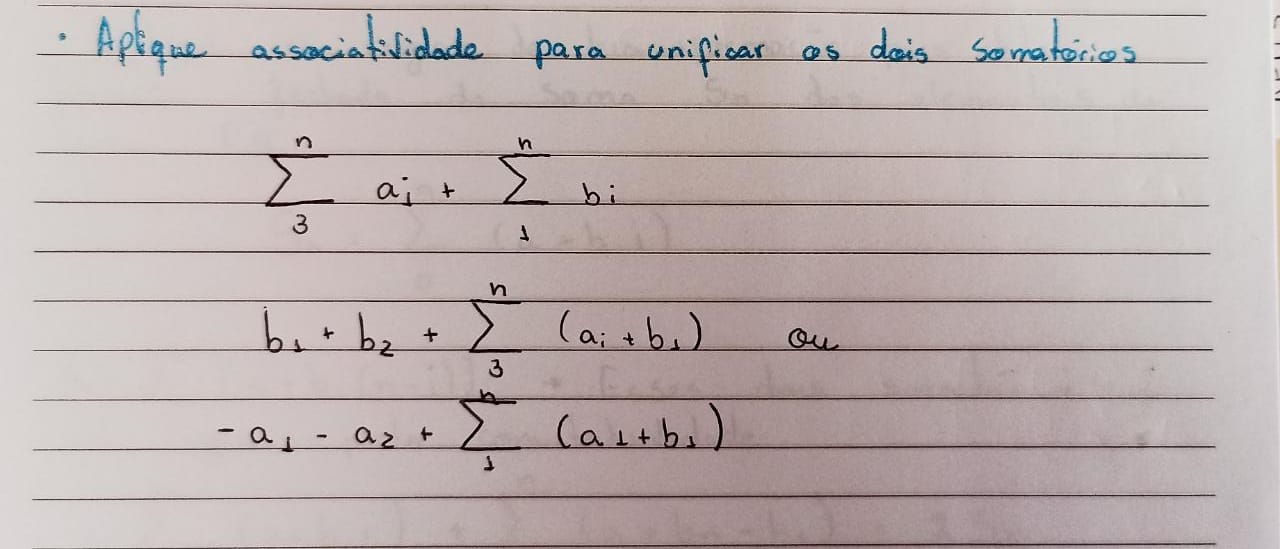 · Aplique associatividade para unificar os dois somatórios
n n
∑ ai + ∑ bi
3 1
n
b1 + b2 + ∑ (ai + b1) ou
3
n
- a1 - a2 + ∑ (a1 + b1)
1